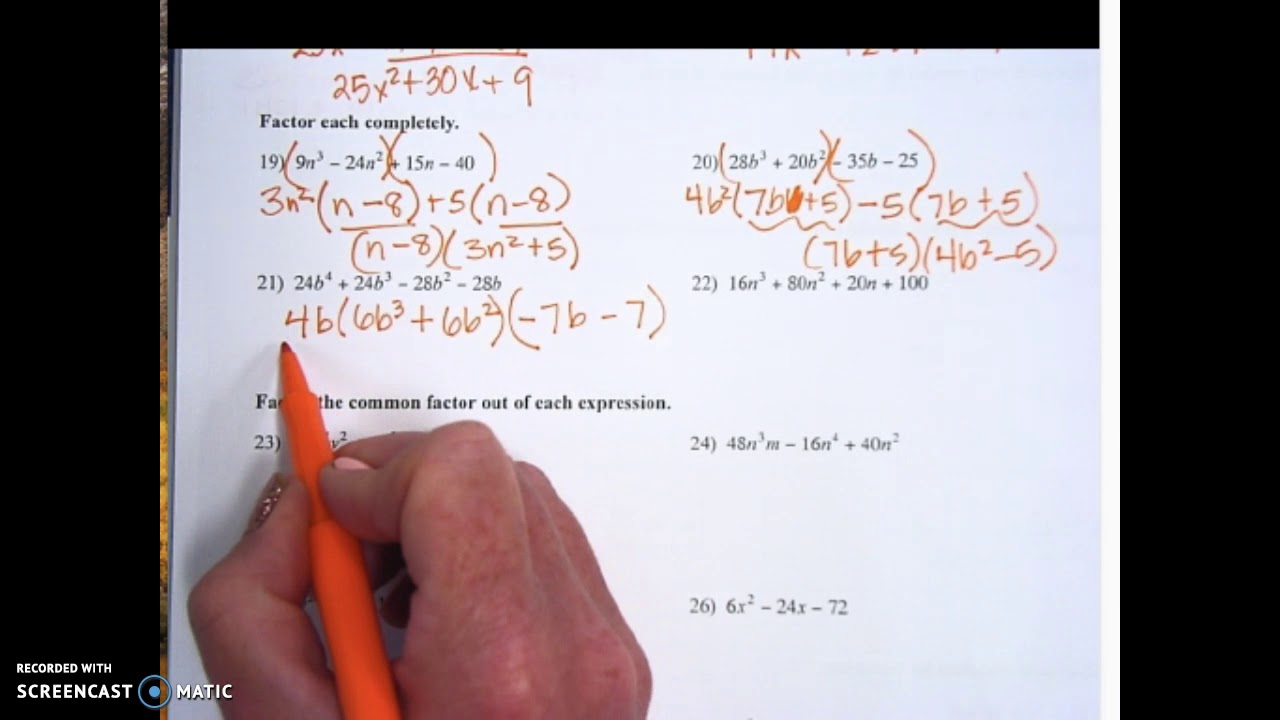 25x²+30x+9
Factor each completely.
19) (9n³ − 24n²)(+ 15n − 40)
3n²(n−8)+5(n−8)
(n−8)(3n²+5)
20) (28b³ + 20b²)(− 35b − 25)
4b²(7b+5)−5(7b+5)
(7b+5)(4b²−5)
21) 24b⁴ + 24b³ − 28b² − 28b
4b(6b³+6b²)(−7b−7)
22) 16n³ + 80n² + 20n + 100
the common factor out of each expression.
23)
24) 48n³m − 16n⁴ + 40n²
26) 6x² − 24x − 72
RECORDED WITH
SCREENCAST MATIC